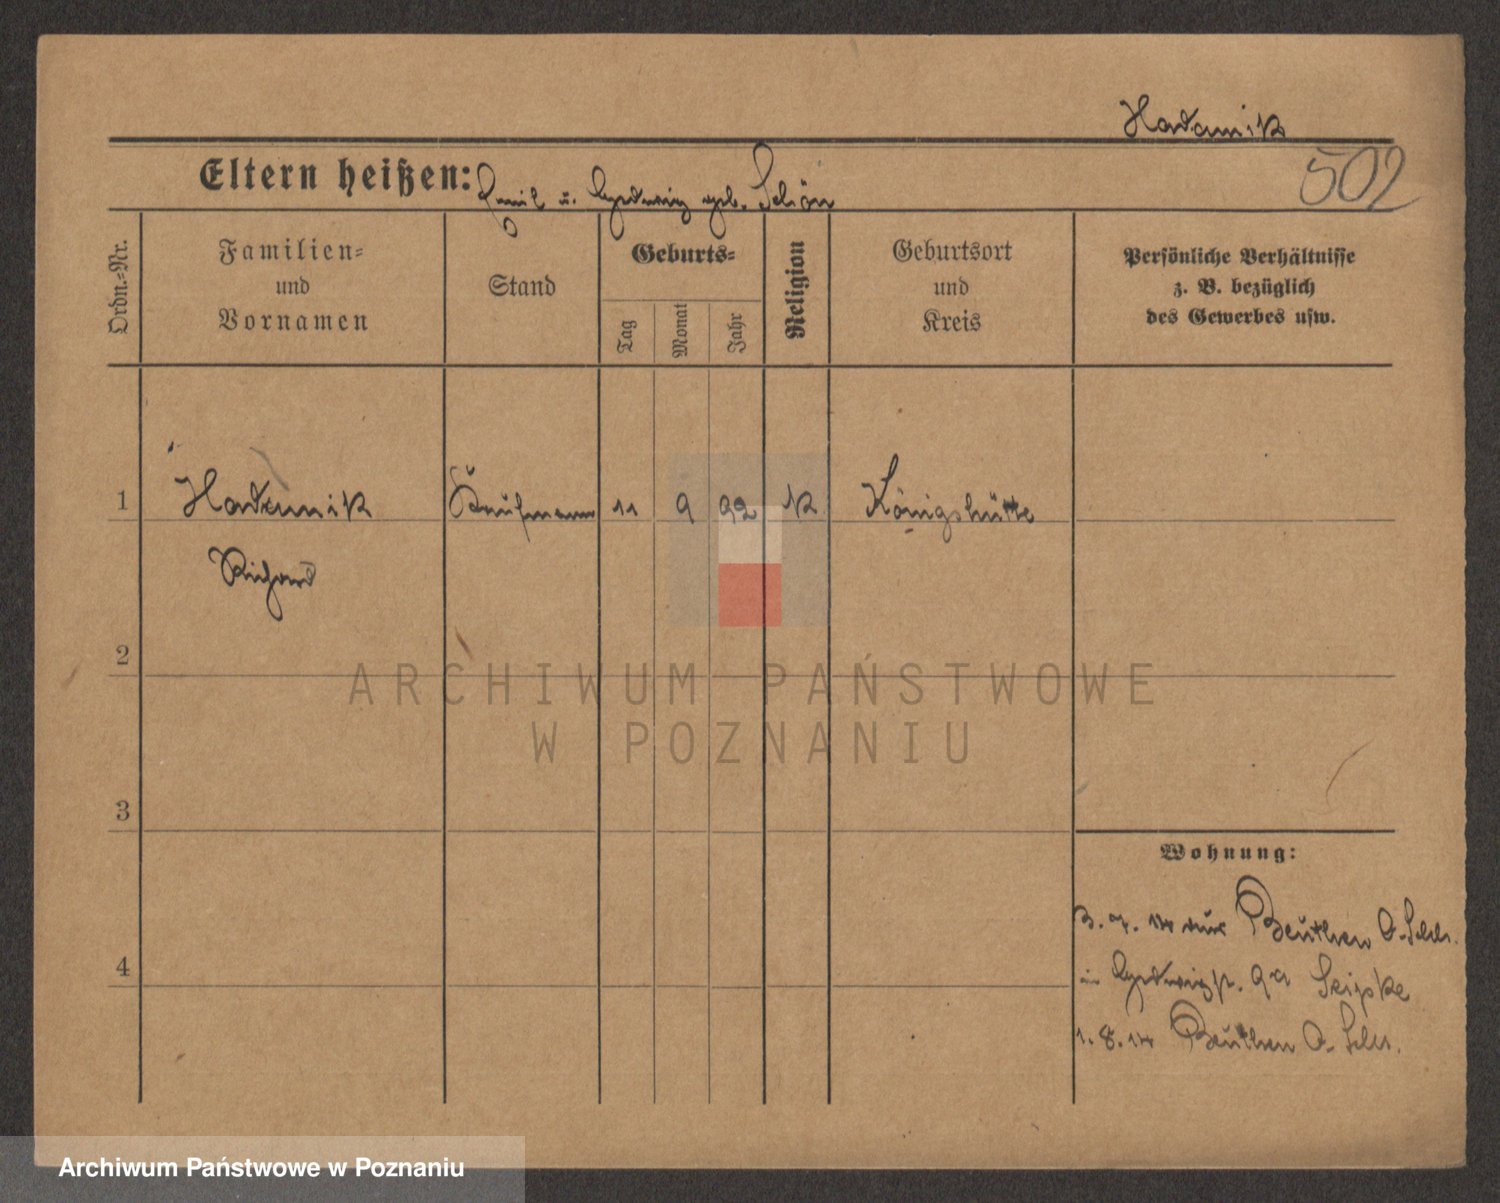 Hadamik
502
Eltern heißen: Emil u. Hedwig geb. Schön
Ordn.-Nr.
Familien-
und
Vornamen
Stand
Geburts-
Tag
Monat
Jahr
Religion
Geburtsort
und
Kreis
Persönliche Verhältnisse
z. B. bezüglich
des Gewerbes usw.
1 Hadamik Kaufmann 11 9 92 K Königshütte
Richard
2
3
4
Wohnung:
aus Beuthen O.-Schl.
in Hedwigstr. 9a
1. 8. 14 Beuthen O.-Schl.
ARCHIWUM PAŃSTWOWE
W POZNANIU
Archiwum Państwowe w Poznaniu